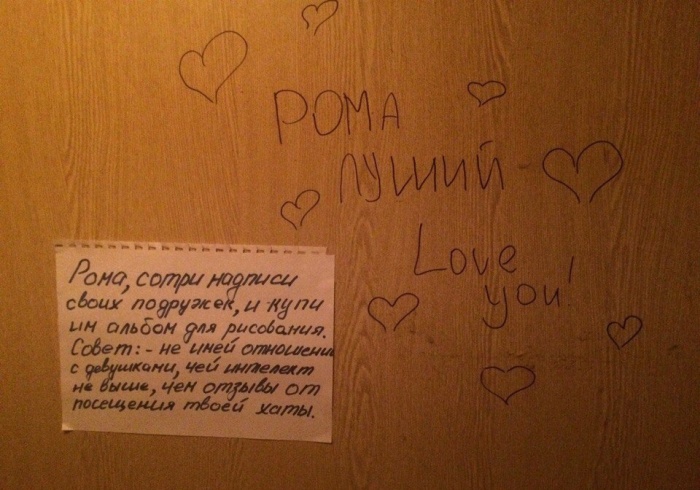 РОМА
ЛУШИЙ
Love
you!
Рома, сотри надписи
своих подружек, и купи
им альбом для рисования.
Совет: - не имей отношении
с девушками, чей интелект
не выше, чем отзывы от
посещения твоей хаты.